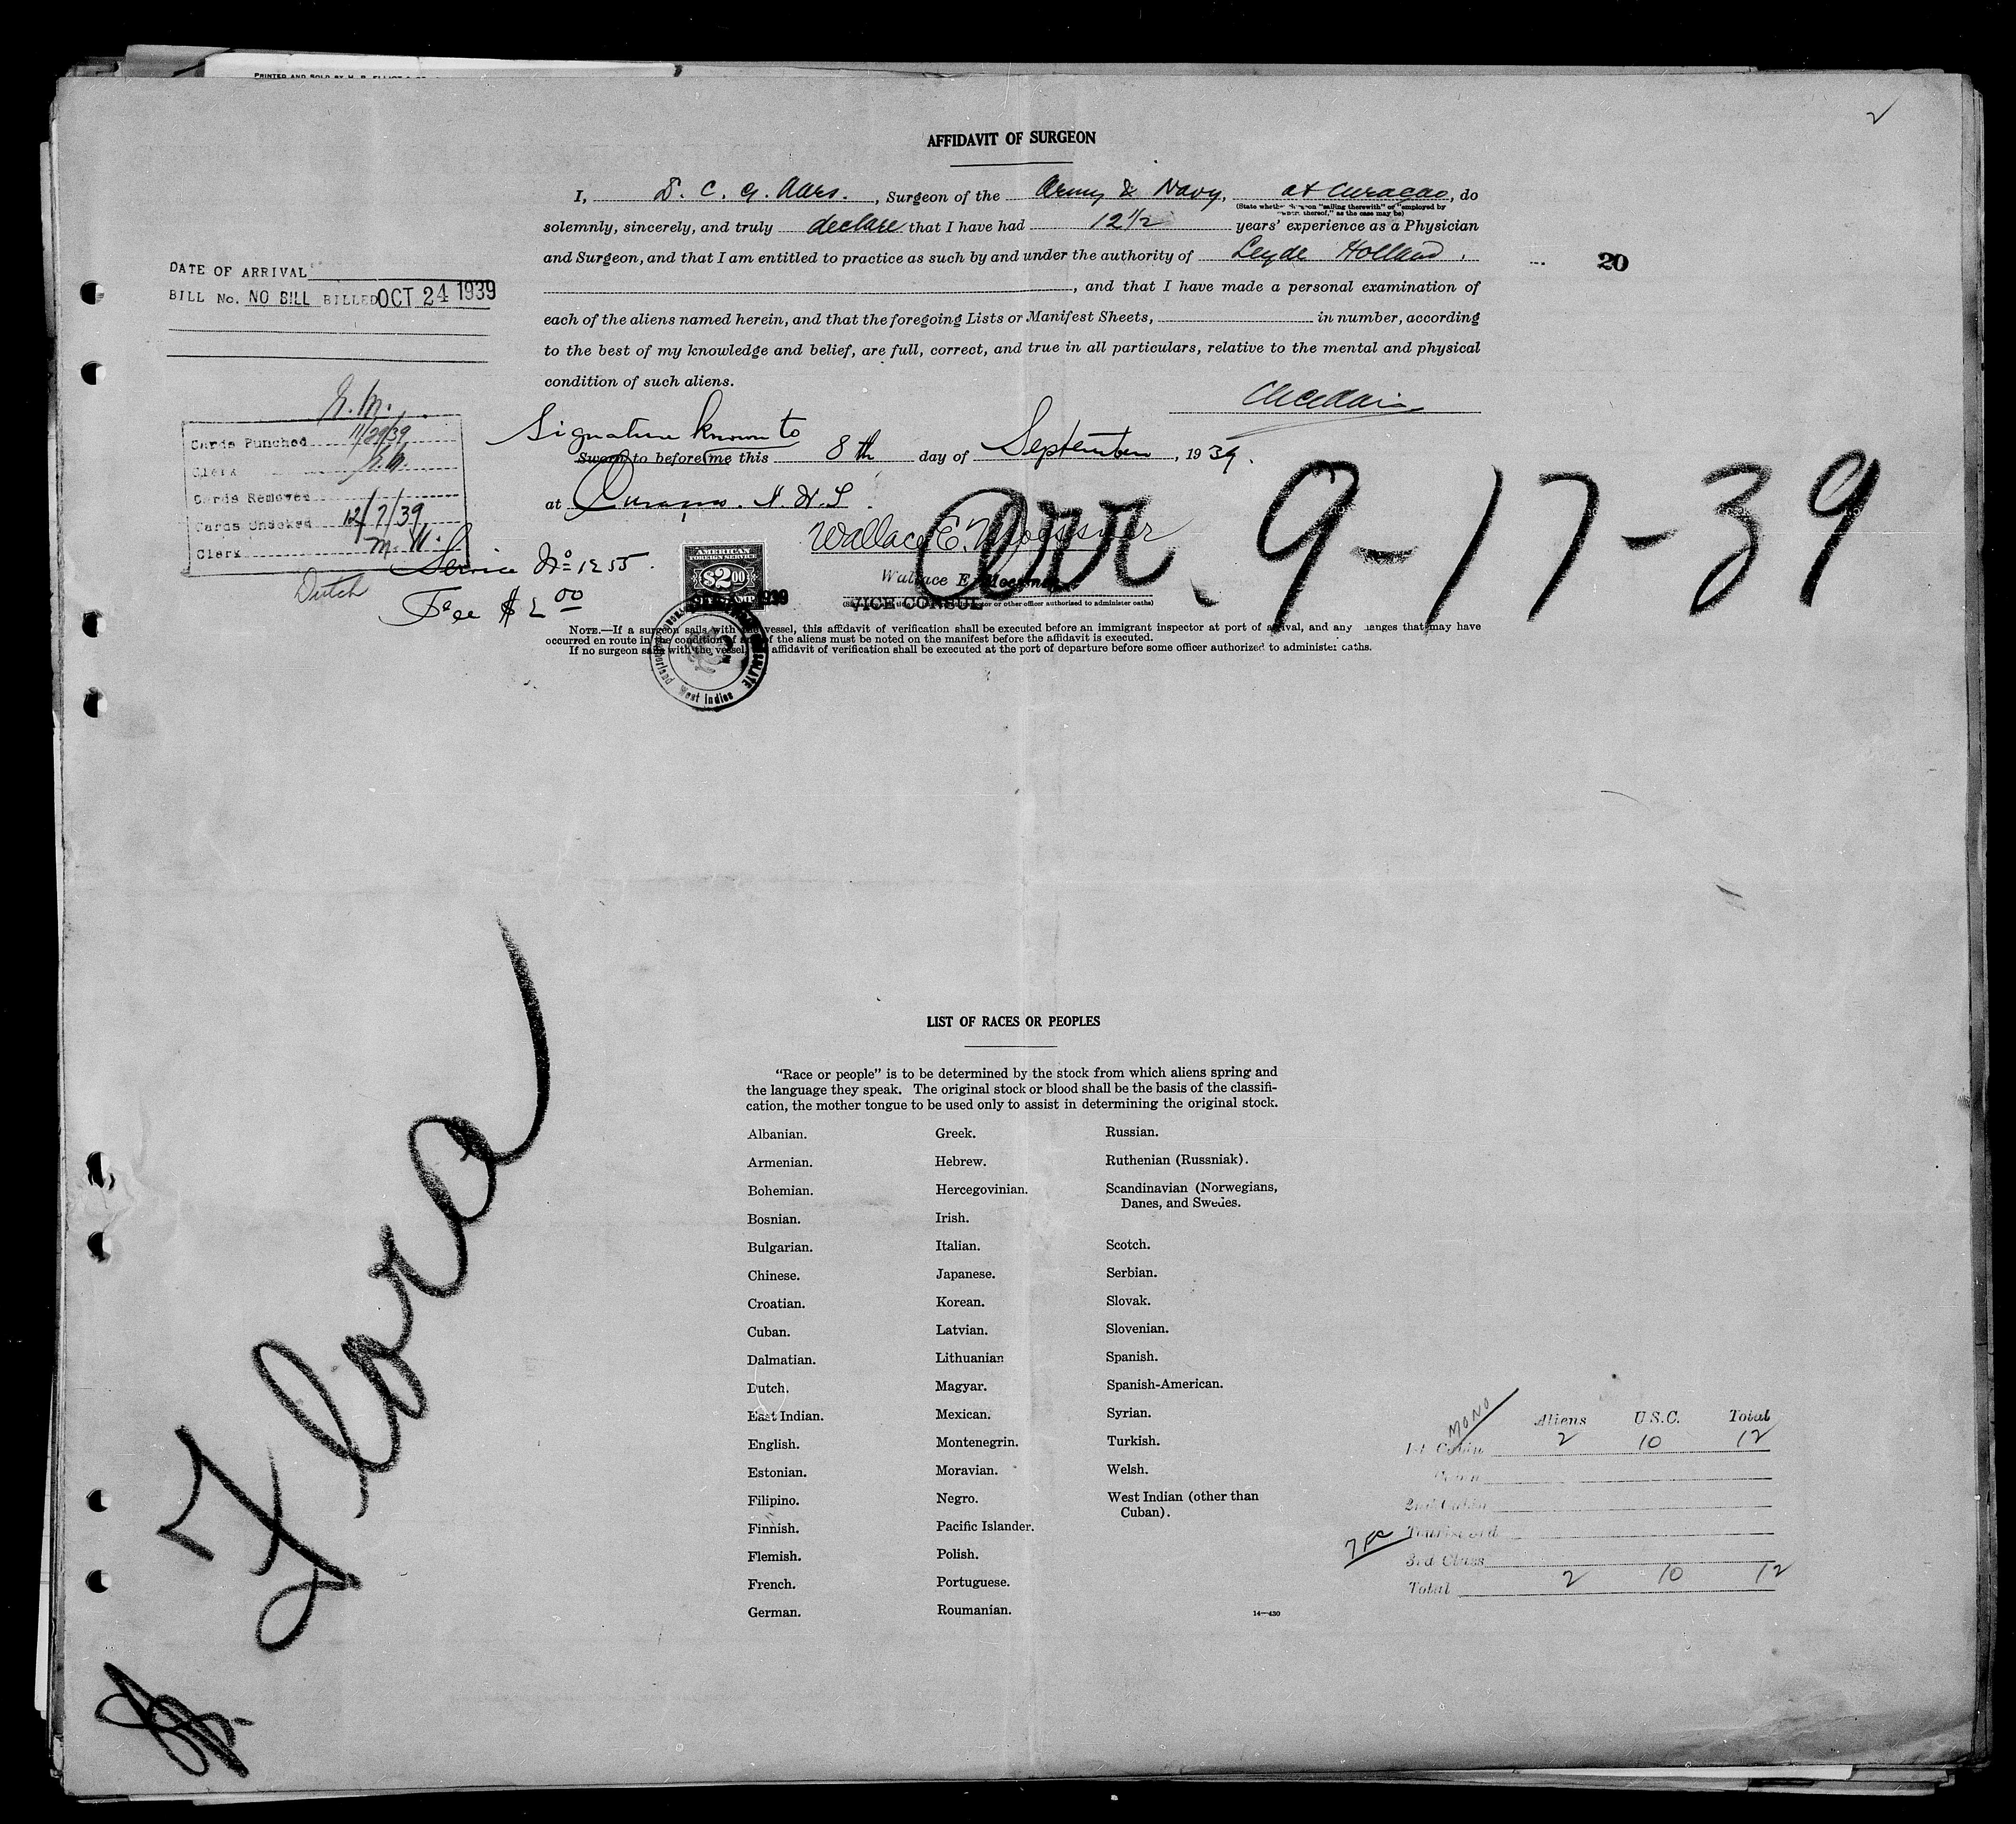 PRINTED AND SOLD BY
2
AFFIDAVIT OF SURGEON
I, D. C. G. Aars., Surgeon of the Army & Navy, at Curaçao, do
(State whether surgeon "sailing therewith" or "employed by
owners thereof," as the case may be)
solemnly, sincerely, and truly declare that I have had 12 1/2 years' experience as a Physician
and Surgeon, and that I am entitled to practice as such by and under the authority of Leyde Holland.
20
, and that I have made a personal examination of
each of the aliens named herein, and that the foregoing Lists or Manifest Sheets, in number, according
to the best of my knowledge and belief, are full, correct, and true in all particulars, relative to the mental and physical
condition of such aliens.
DATE OF ARRIVAL
BILL No. NO BILL BILLED OCT 24 1939
Cards Punched 11/29/39
Clerk
Cards Removed
Cards Checked 12/7/39
Clerk M. M.
Signature known to
Sworn to before me this 8th day of September, 1939.
at Curaçao. N. W. I.
Arr. 9-17-39
Wallace E. Moessner
Wallace E. Moessner
VICE CONSUL
or other officer authorized to administer oaths)
Service No 1255.
Dutch
Fee $2 00
AMERICAN
FOREIGN SERVICE
$2.00
West Indies
NOTE.—If a surgeon sails with the vessel, this affidavit of verification shall be executed before an immigrant inspector at port of arrival, and any changes that may have
occurred en route in the condition of any of the aliens must be noted on the manifest before the affidavit is executed.
If no surgeon sails with the vessel, the affidavit of verification shall be executed at the port of departure before some officer authorized to administer oaths.
Flora
LIST OF RACES OR PEOPLES
"Race or people" is to be determined by the stock from which aliens spring and
the language they speak. The original stock or blood shall be the basis of the classifi-
cation, the mother tongue to be used only to assist in determining the original stock.
Albanian.
Armenian.
Bohemian.
Bosnian.
Bulgarian.
Chinese.
Croatian.
Cuban.
Dalmatian.
Dutch.
East Indian.
English.
Estonian.
Filipino.
Finnish.
Flemish.
French.
German.
Greek.
Hebrew.
Hercegovinian.
Irish.
Italian.
Japanese.
Korean.
Latvian.
Lithuanian
Magyar.
Mexican.
Montenegrin.
Moravian.
Negro.
Pacific Islander.
Polish.
Portuguese.
Roumanian.
Russian.
Ruthenian (Russniak).
Scandinavian (Norwegians,
Danes, and Swedes.
Scotch.
Serbian.
Slovak.
Slovenian.
Spanish.
Spanish-American.
Syrian.
Turkish.
Welsh.
West Indian (other than
Cuban).
14—430
MONO
Aliens U.S.C. Total
1st Cabin 2 10 12
Cabin
2nd Cabin
Tourist 3rd
3rd Class
Total 2 10 12